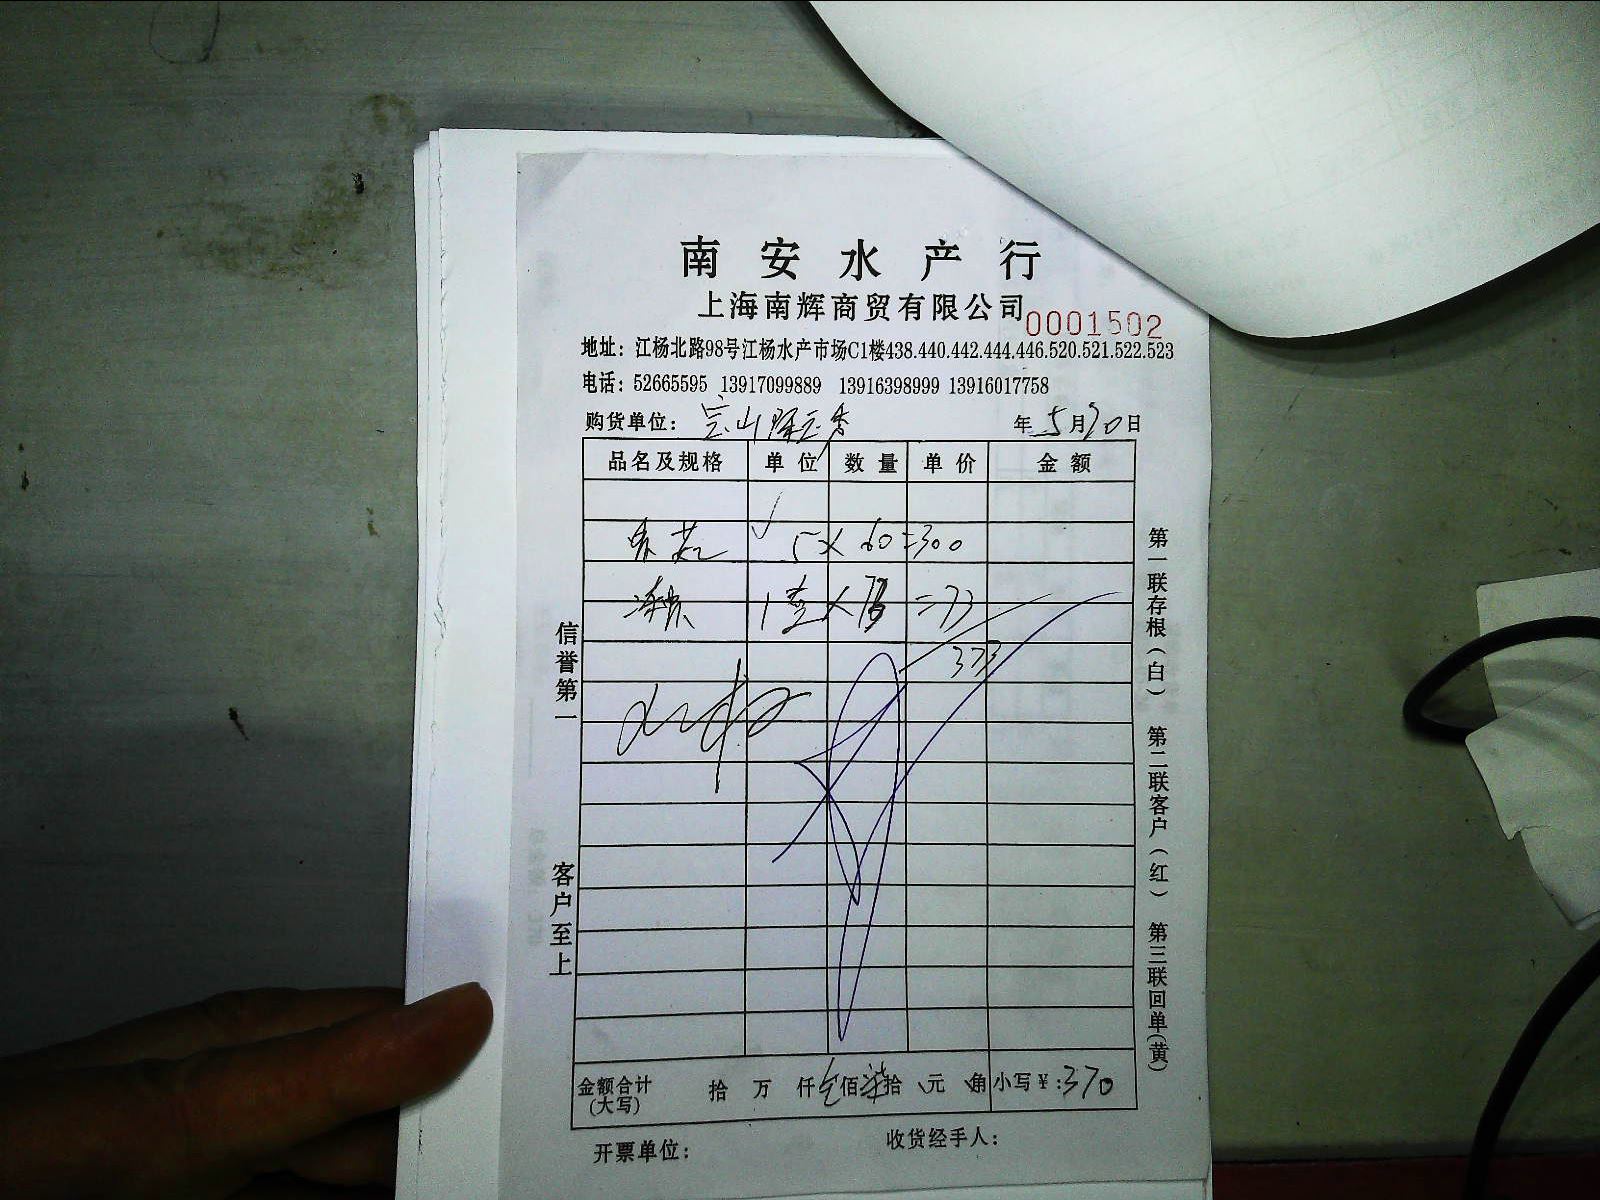 南安水产行
上海南辉商贸有限公司
0001502
地址：江杨北路98号江杨水产市场C1楼438.440.442.444.446.520.521.522.523
电话：52665595 13917099889 13916398999 13916017758
购货单位： 年5月20日
品名及规格 单位 数量 单价 金额
5×60=300
=73
373
信誉第一
客户至上
第一联存根（白） 第二联客户（红） 第三联回单（黄）
金额合计（大写） 拾 万 仟 佰柒拾 元 角 小写¥:370
开票单位： 收货经手人：